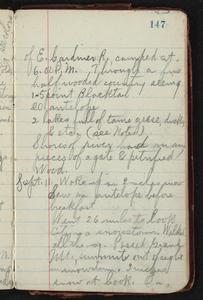 147
of E. Gardiner R, camped at
6:30 P.M. Through a fine
half wooded country seeing
1-5 point Blacktail
20 antelope
2 lakes full of tame geese, ducks
& etc, (see Notes)
Shores of pure and many
pieces of agate & petrified
Wood.
Sept. 11, Woke up in 3 inches snow
Saw antelope before
breakfast
Went 26 miles to Cook
City in a snowstorm. Walked
all the way. Passed
summit out
in snowstorm 3 inches
snow at Cook.